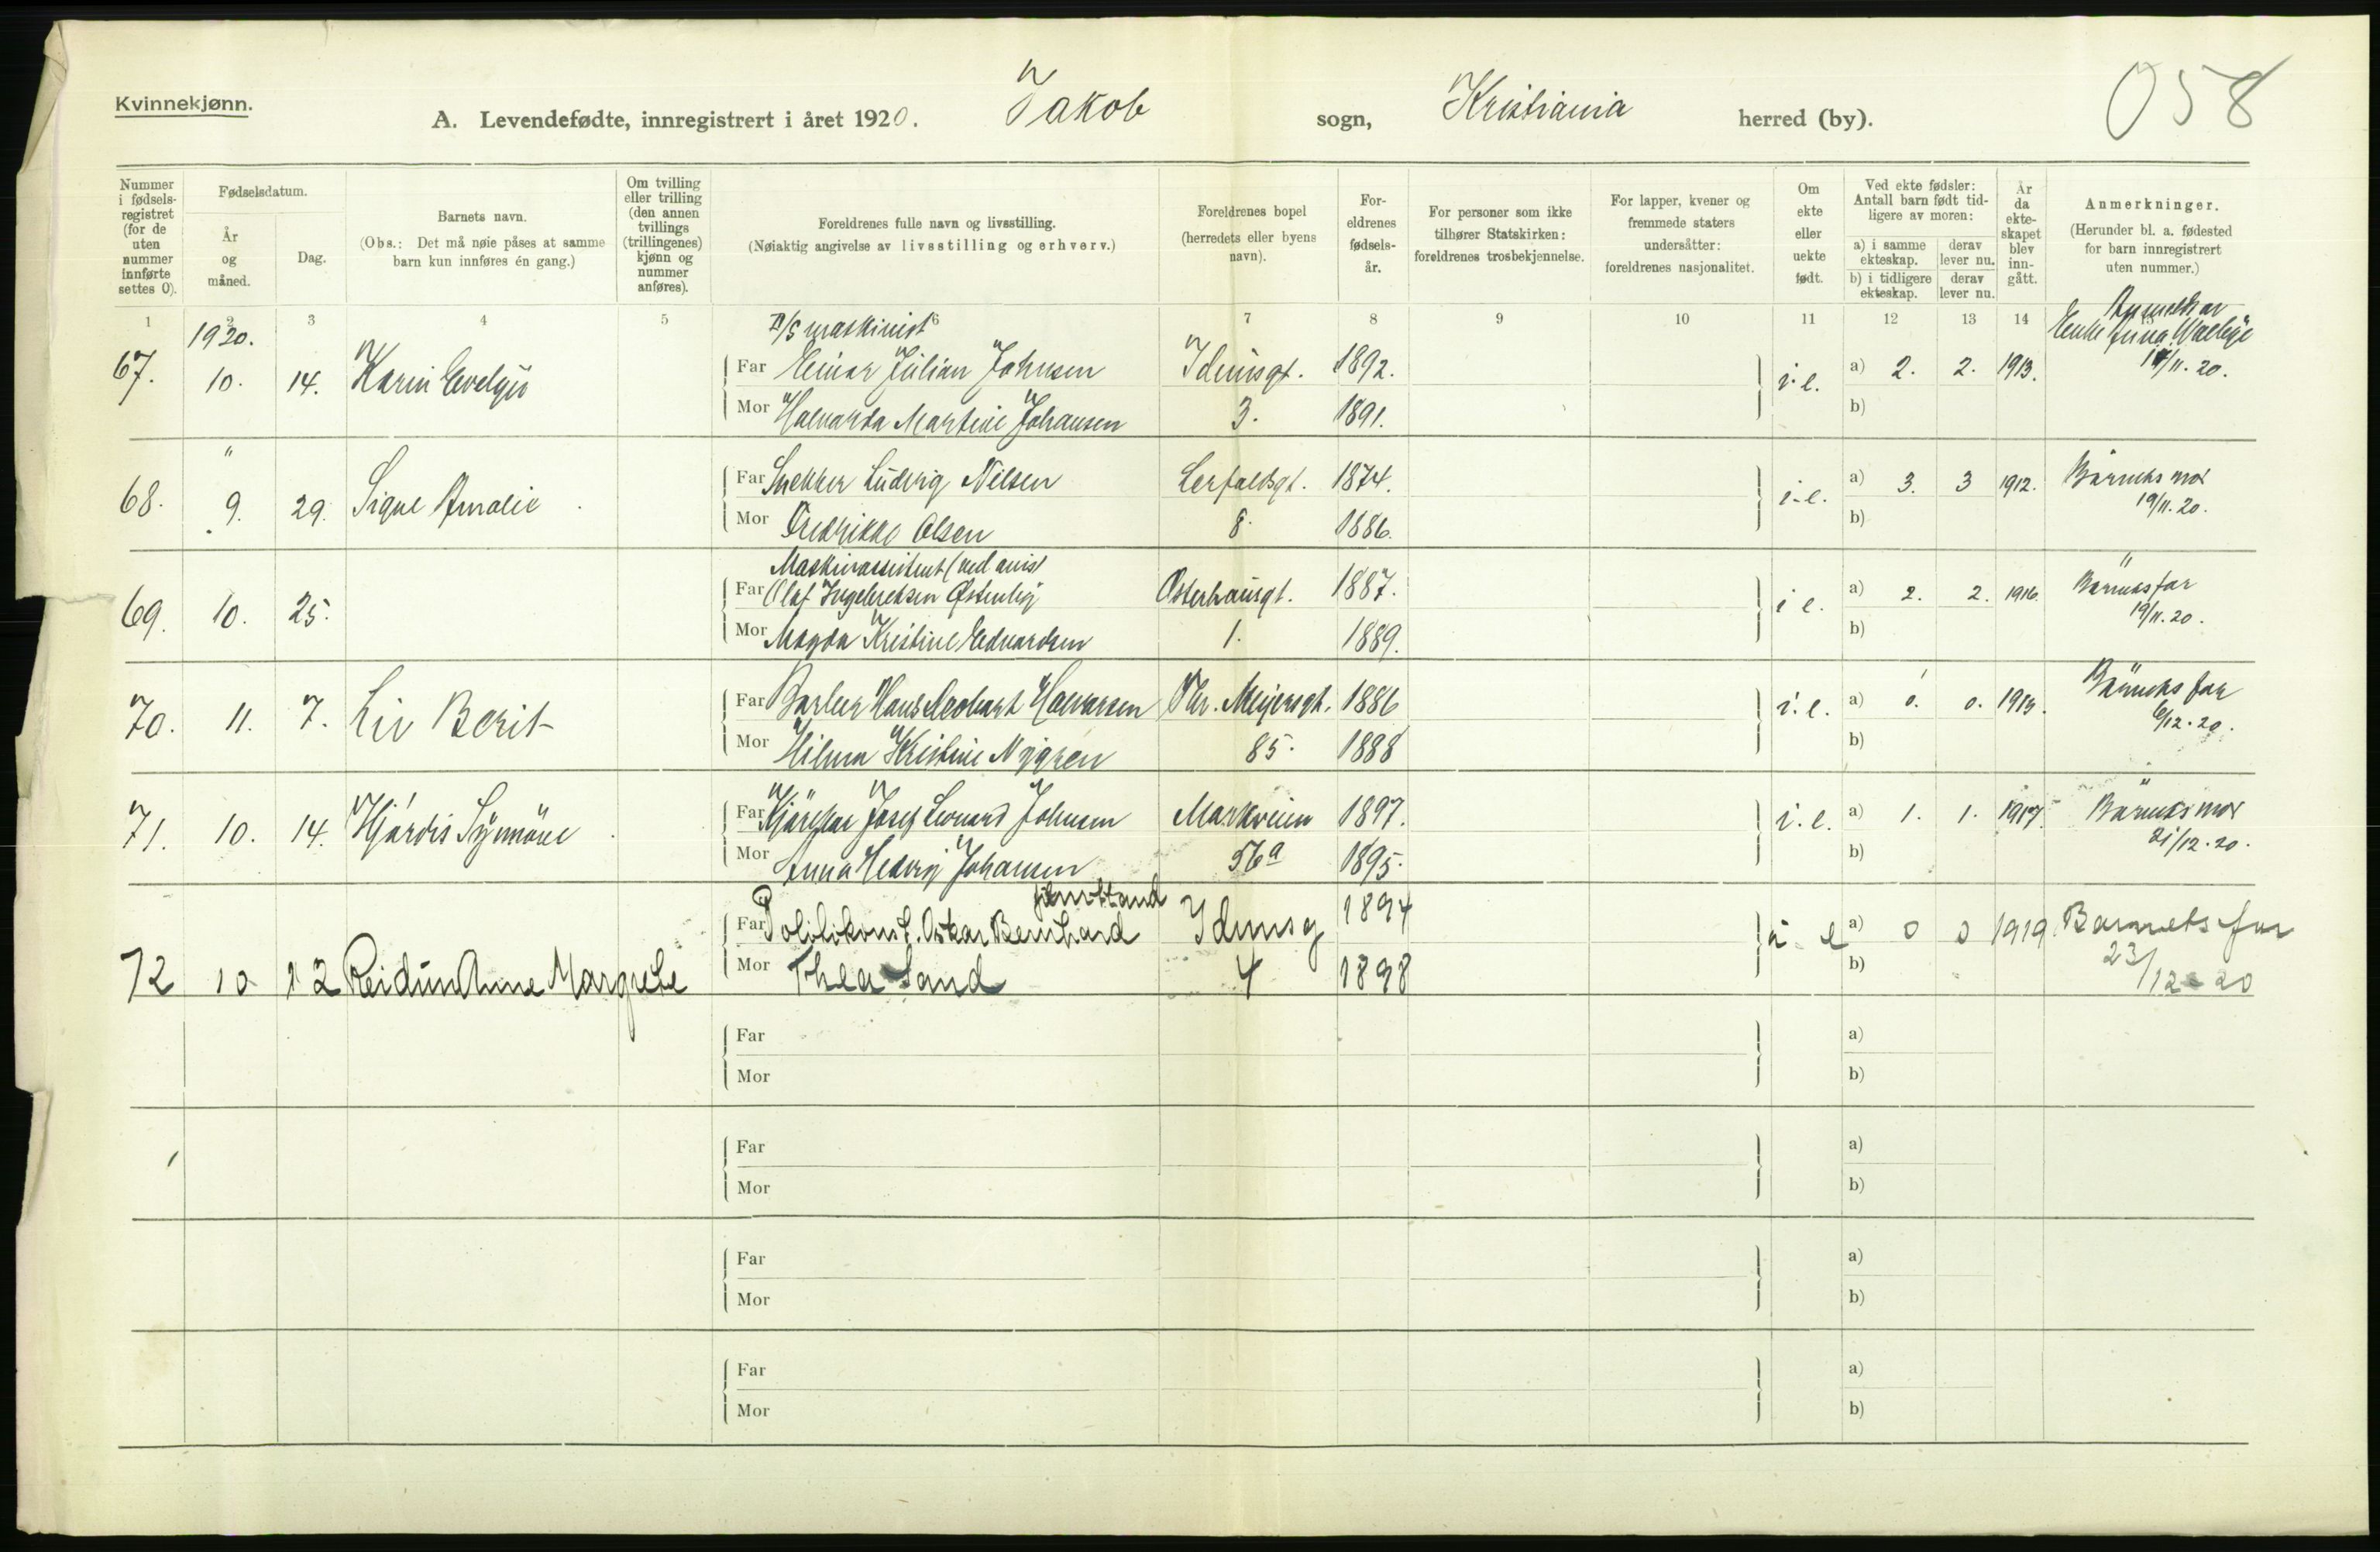 Kvinnekjønn.
A. Levendefødte, innregistrert i året 1920. Jakob sogn, Kristiania herred (by).
058
Nummer i fødselsregistret (for de uten nummer innførte settes 0).
Fødselsdatum.
År og måned.
Dag.
Barnets navn.
(Obs.: Det må nøie påses at samme barn kun innføres én gang.)
Om tvilling eller trilling (den annen tvillings (trillingenes) kjønn og nummer anføres).
Foreldrenes fulle navn og livsstilling.
(Nøiaktig angivelse av livsstilling og erhverv.)
Foreldrenes bopel (herredets eller byens navn).
Foreldrenes fødselsår.
For personer som ikke tilhører Statskirken: foreldrenes trosbekjennelse.
For lapper, kvener og fremmede staters undersåtter: foreldrenes nasjonalitet.
Om ekte eller uekte født.
Ved ekte fødsler: Antall barn født tidligere av moren:
a) i samme ekteskap. derav lever nu.
b) i tidligere ekteskap. derav lever nu.
År da ekteskapet blev inngått.
Anmerkninger.
(Herunder bl. a. fødested for barn innregistrert uten nummer.)
1 2 3 4 5 6 7 8 9 10 11 12 13 14
1920. maskinist
67. 10. 14. Karin Evelyn Far Einar Julian Johnsen Idunsgt. 1892. i e. a) 2. 2. 1913. Enke Anna 11. 20.
Mor Halvarda Martine Johansen 3. 1891. b)
"
68. 9. 29. Signe Amalie Far Snekker Ludvig Nilsen Lerfaldsgt. 1874. i e. a) 3. 3 1912. Barnets mor 19/11. 20.
Mor Fredrikke Olsen 8. 1886. b)
Maskinassistent (ved avis)
69. 10. 25. Far Olaf Ingebretsen Østenbig Osterhausgt. 1887. i e. a) 2. 2. 1916. Barnets far 19/11. 20.
Mor Magda Kristine Edvardsen 1. 1889. b)
70. 11. 7. Liv Berit Far Hans Halvorsen Thr. Meyersgt. 1886 i. e. a) 0. 0. Barnets far 6/12. 20.
Mor Hilma Kristine Nygren 85. 1888 b)
71. 10. 14. Hjördis Synnöve Far Josef Leonard Johnsen Markveien 1897. i. e. a) 1. 1. 1917. Barnets mor 21/12. 20.
Mor Anna Hedvig Johansen 56a 1895. b)
72 10 12 Reidun Anne Margrete Far Politikonst. Oskar Bernhard Idunsg 1894 a) 0 0 1919. Barnets far 23/12-20
Mor Thea Sand 4 1898 b)
Far a)
Mor b)
Far a)
Mor b)
Far a)
Mor b)
Far a)
Mor b)